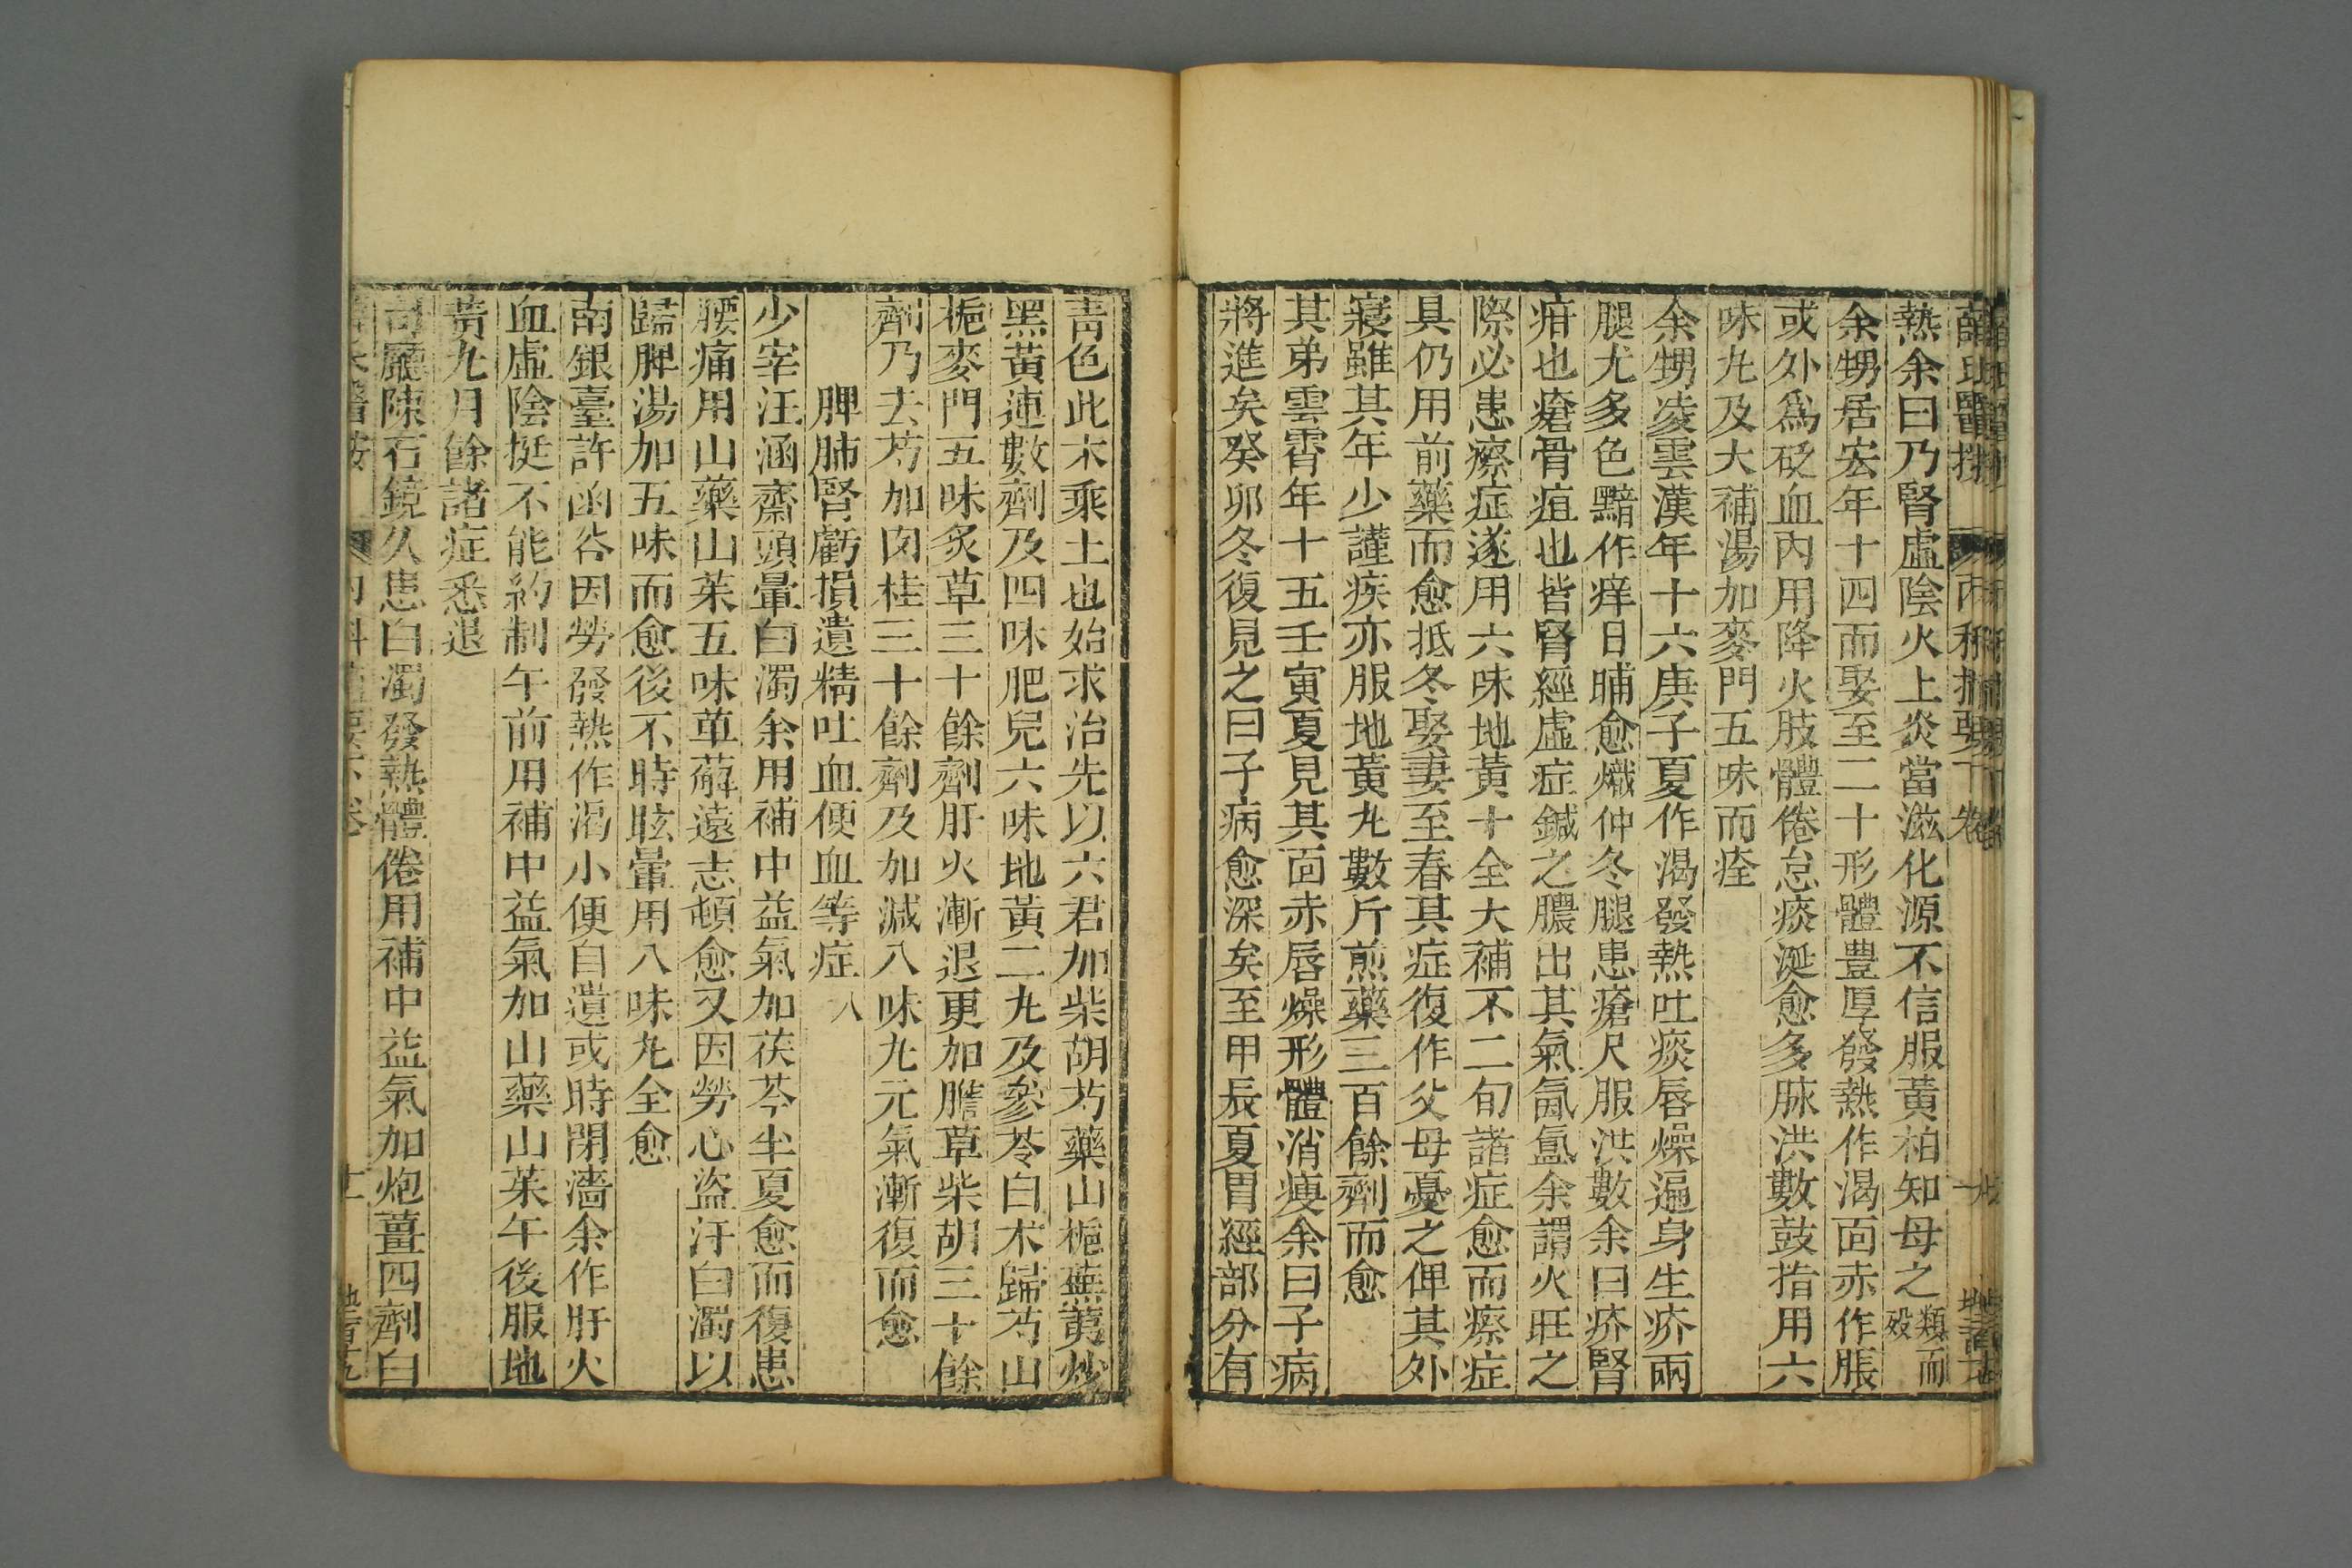 薛氏醫按 內科摘要下卷
熱余曰乃腎虛陰火上炎當滋化源不信服黃柏知母之類而歿
余甥居宏年十四而娶至二十形體豊厚發熱作渴面赤作脹
或外爲砭血內用降火肢體倦怠痰涎愈多脉洪數鼓指用六
味丸及大補湯加麥門五味而痊
余甥凌雲漢年十六庚子夏作渴發熱吐痰唇燥遍身生疥兩
腿尤多色黯作痒日晡愈熾仲冬腿患瘡尺服洪數余曰疥腎
疳也瘡骨疽也皆腎經虛症鍼之膿出其氣氤氳余謂火旺之
際必患瘵症遂用六味地黃十全大補不二旬諸症愈而瘵症
具仍用前藥而愈抵冬娶妻至春其症復作父母憂之俾其外
寢雖其年少謹疾亦服地黃丸數斤煎藥三百餘劑而愈
其弟雲霄年十五壬寅夏見其面赤唇燥形體消瘦余曰子病
將進矣癸卯冬復見之曰子病愈深矣至甲辰夏胃經部分有
青色此木乘土也始求治先以六君加柴胡芍藥山梔蕪荑炒
黑黃連數劑及四味肥兒六味地黃二丸及參苓白术歸芍山
梔麥門五味炙草三十餘劑肝火漸退更加膽草柴胡三十餘
劑乃去芍加肉桂三十餘劑及加減八味丸元氣漸復而愈
脾肺腎虧損遺精吐血便血等症 八
少宰汪涵齋頭暈白濁余用補中益氣加茯苓半夏愈而復患
腰痛用山藥山茱五味萆薢遠志頓愈又因勞心盜汗白濁以
歸脾湯加五味而愈後不時眩暈用八味丸全愈
南銀臺許函谷因勞發熱作渴小便自遺或時閉澀余作肝火
血虛陰挺不能約制午前用補中益氣加山藥山茱午後服地
黃丸月餘諸症悉退
司廳陳石鏡久患白濁發熱體倦用補中益氣加炮薑四劑白